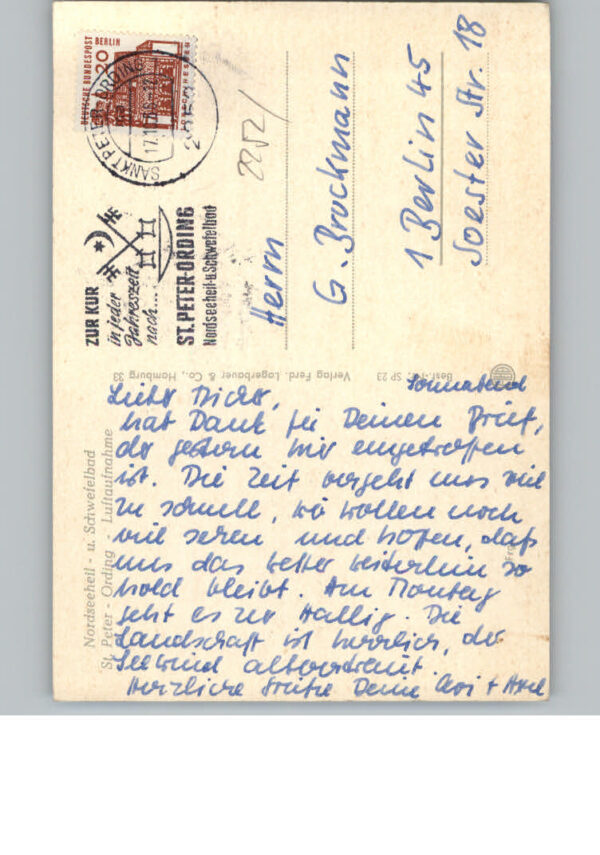 DEUTSCHE BUNDESPOST BERLIN
20
SANKT PETER-ORDING
ZUR KUR
in jeder
Jahreszeit
nach...
ST. PETER-ORDING
Nordseeheil-u.Schwefelbad
2252/
Herrn
G. Brockmann
1 Berlin 45
Soester Str. 18
Verlag Ferd. Lagerbauer & Co., Hamburg 33
SP 23
Nordseeheil- u. Schwefelbad
St. Peter - Ording - Luftaufnahme
Sonnabend
Lieber
hab Dank für Deinen Brief,
der gestern hier eingetroffen
ist. Die Zeit vergeht uns viel
zu schnell, wir wollen noch
viel sehen und hoffen, daß
uns das Wetter weiterhin so
hold bleibt. Am Montag
geht es zur Hallig. Die
Landschaft ist herrlich, der
Seewind
Herzliche Grüße Deine + Axel